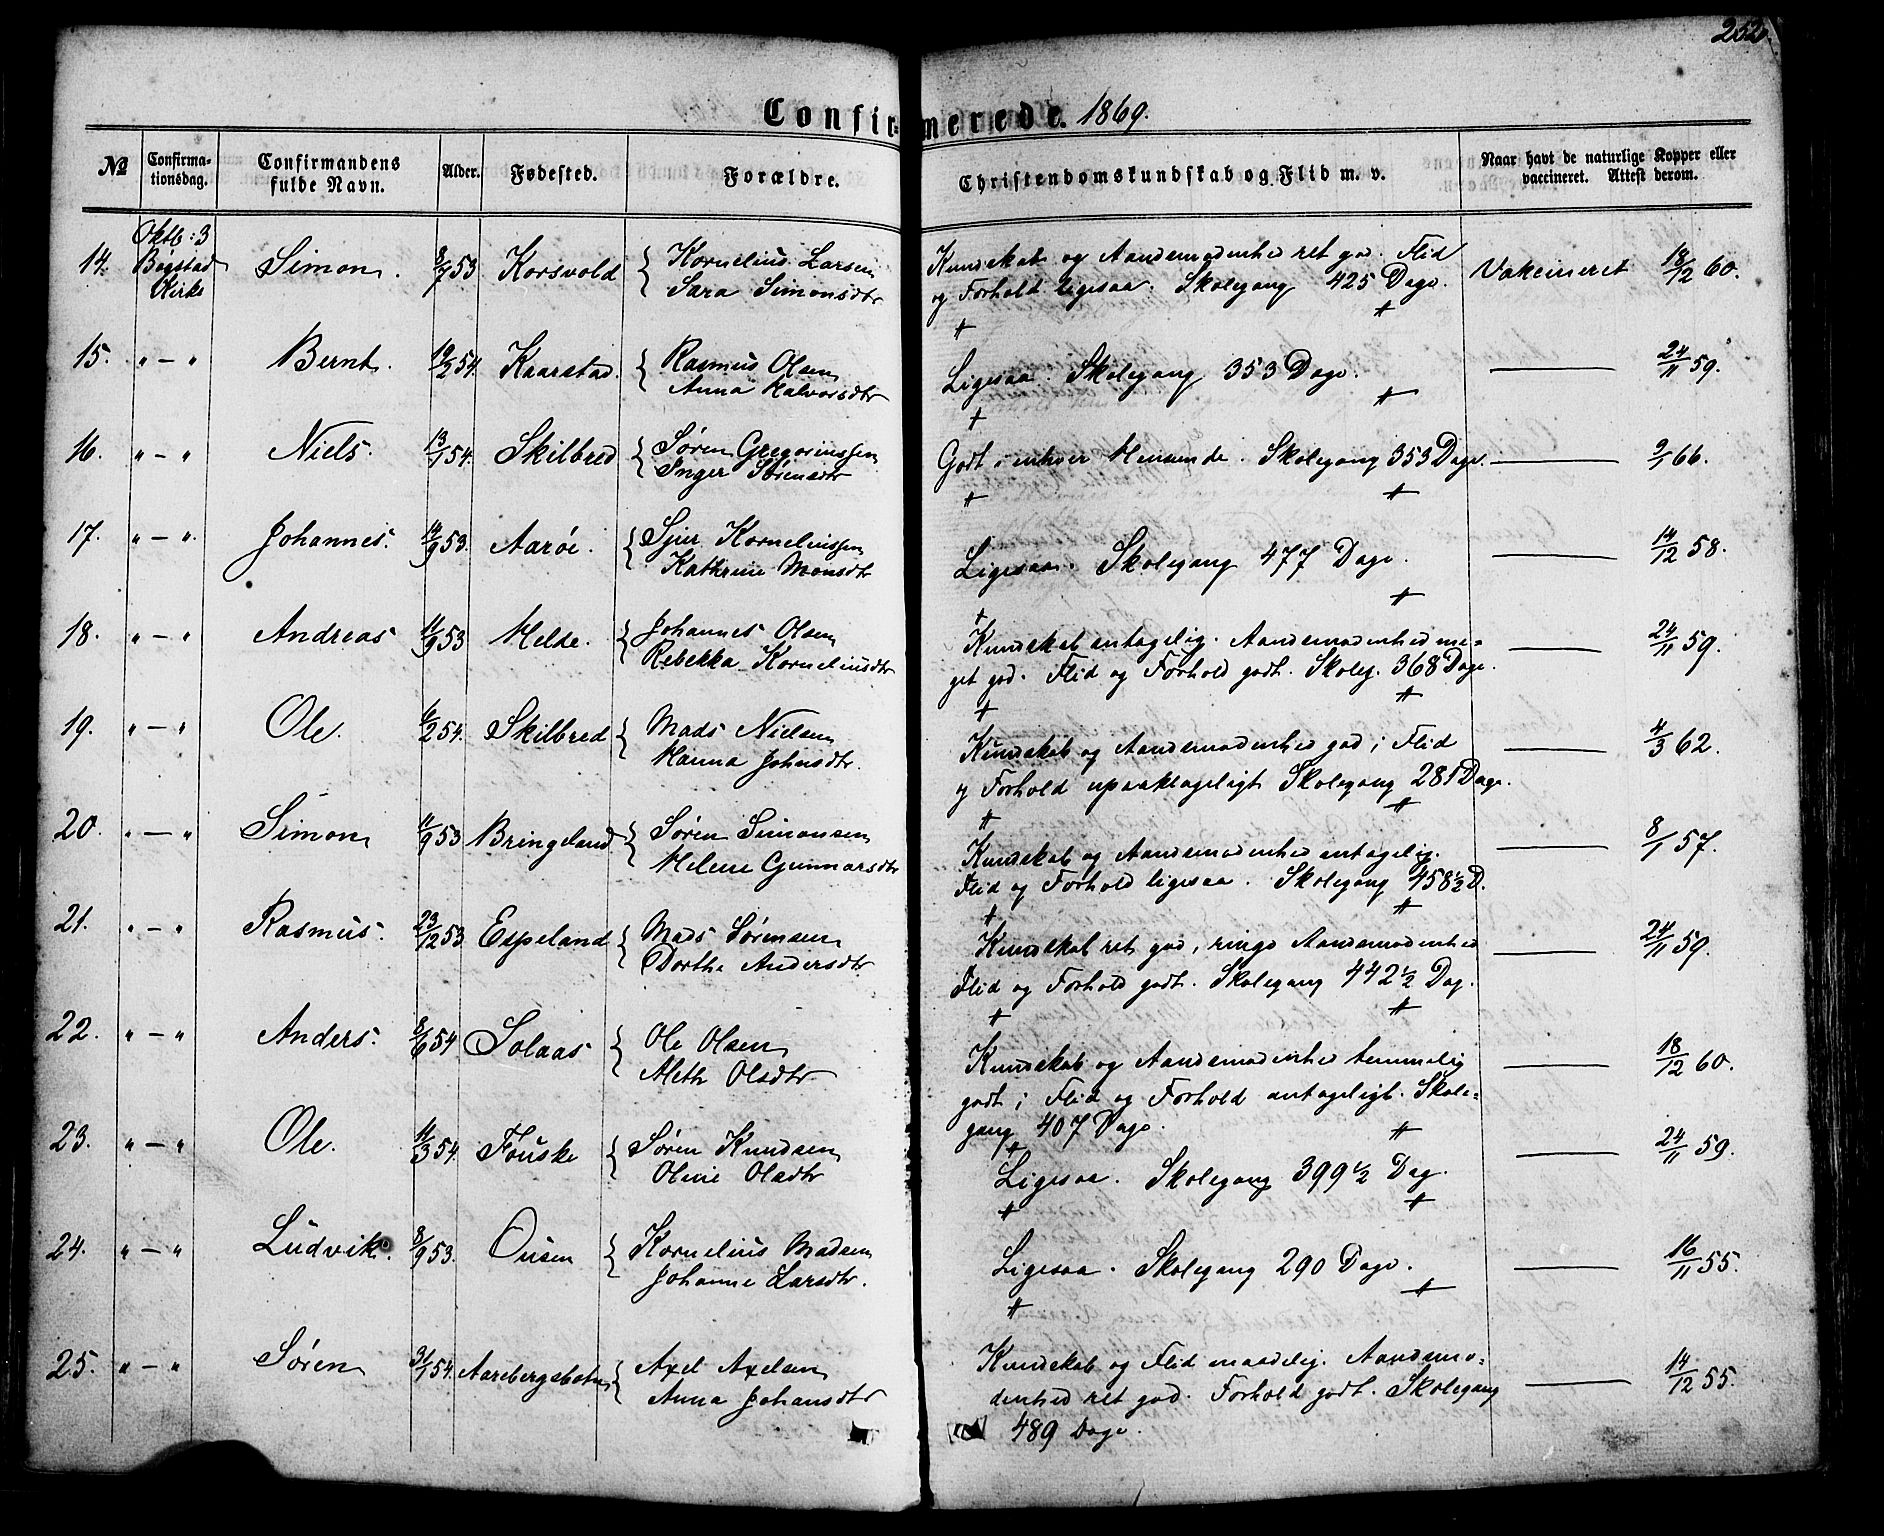 252.
Confirmerede. 1869.
No Confirma-tionsdag. Confirmandens fulde Navn. Alder. Fødested. Forældre. Christendomskundskab og Flid m. v. Naar havt de naturlige Kopper eller vaccineret. Attest derom.
Oktb: 3
14. Bøgstad Simon. 8/7 53 Korsvold { Kornelius Larsen Kundskab og Aandsmodenhed ret god. Flid Vakcineret 18/12 60.
Kirke Sara Simonsdtr og Forhold ligesaa. Skolegang 425 Dage.
15. " — " Bernt. 19/2 54. Kaarstad. { Rasmus Olsen Ligesaa. Skolegang 353 Dage. —— 24/11 59.
Anna Halvorsdtr
16. " — " Niels. 13/1 54. Skilbred { Søren Gregoriussen Godt i enhver Henseende. Skolegang 353 Dage. —— 9/1 66.
Inger Sørensdtr
17. " — " Johannes. 14/9 53. Aarøe. { Sjur Korneliussen Ligesaa. Skolegang 477 Dage. —— 14/12 58.
Kathrine Monsdtr
18. " — " Andreas. 11/9 53 Helde. { Johannes Olsen Kundskab antagelig. Aandsmodenhed me- —— 24/11 59.
Rebekka Korneliusdtr get god. Flid og Forhold godt. Skoleg. 368 Dage.
19. " — " Ole. 6/2 54. Skilbred { Mads Nielsen Kundskab og Aandsmodenhed god; Flid —— 4/3 62.
Hanna Johnsdtr. og Forhold upaaklageligt Skolegang 281 Dage.
20. " — " Simon 11/9 53 Bringeland { Søren Simonsen Kundskab og Aandsmodenhed antagelig. —— 8/1 57.
Helene Gunnarsdtr Flid og Forhold ligesaa. Skolegang 458 1/2 D.
21. " — " Rasmus. 23/12 53 Espeland { Mads Sørensen Kundskab ret god, ringe Aandsmodenhed —— 24/11 59.
Dorthe Andersdtr Flid og Forhold godt. Skolegang 442 1/2 Dag.
22. " — " Anders. 8/6 54 Solaas { Ole Olsen Kundskab og Aandsmodenhed temmelig —— 18/12 60.
Aleth Olsdtr godt; Flid og Forhold antageligt. Skole-
gang 407 Dage.
23. " — " Ole. 11/3 54. Fouske { Søren Knudsen Ligesaa. Skolegang 399 1/2 Dag. —— 24/11 59.
Oline Olsdtr
24. " — " Ludvik. 8/9 53. Ousen { Kornelius Madsen Ligesaa. Skolegang 290 Dage. —— 16/11 55.
Johanne Larsdtr.
25. " — " Søren 31/1 54. Aarebergsbotn { Axel Axelsen Kundskab og Flid maadelig. Aandsmo- —— 14/12 55.
Anna Johansdtr denhed ret god. Forhold godt. Skolegang
489 Dage.